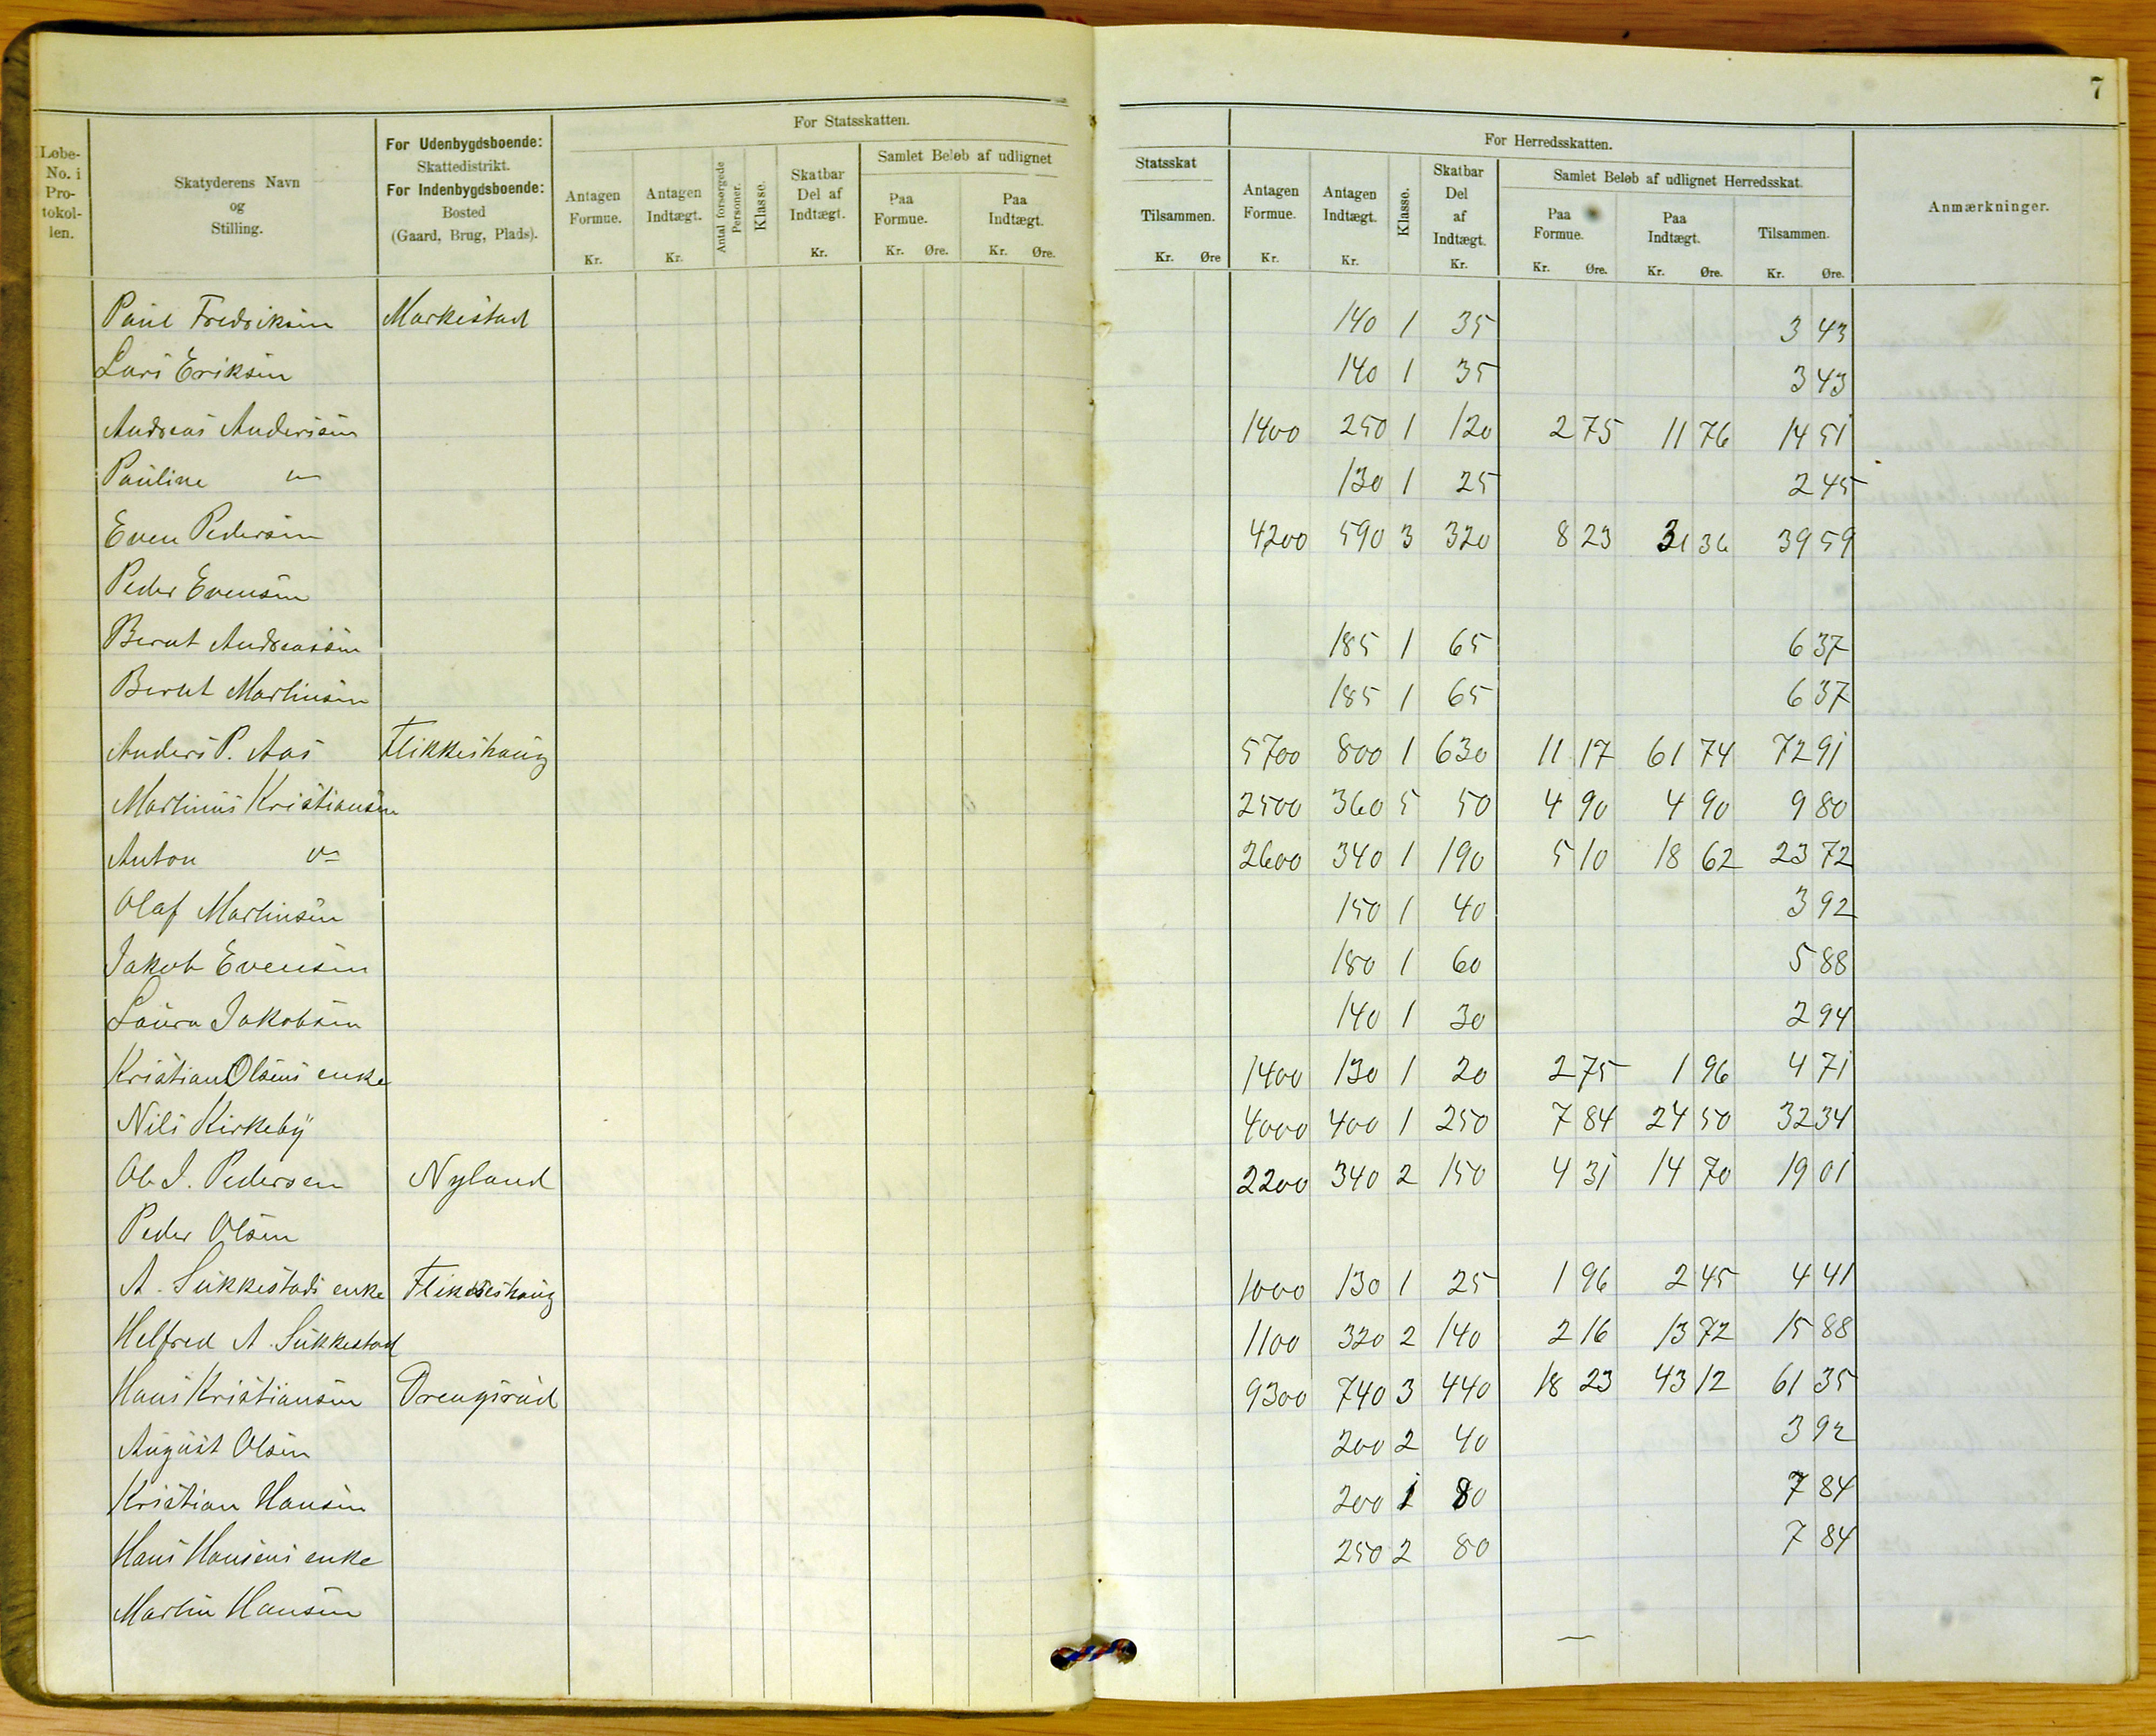 7
Løbe-No. i Pro-tokol-len.
Skatyderens Navn og Stilling.
For Udenbygdsboende: Skattedistrikt. For Indenbygdsboende: Bosted (Gaard, Brug, Plads).
For Statsskatten.
Antagen Formue. Kr.
Antagen Indtægt. Kr.
Antal forsørgede Personer.
Klasse.
Skatbar Del af Indtægt. Kr.
Samlet Beløb af udlignet
Paa Formue. Kr. Øre.
Paa Indtægt. Kr. Øre.
Statsskat Tilsammen. Kr. Øre
For Herredsskatten.
Antagen Formue. Kr.
Antagen Indtægt. Kr.
Klasse.
Skatbar Del af Indtægt. Kr.
Samlet Beløb af udlignet Herredsskat.
Paa Formue. Kr. Øre.
Paa Indtægt. Kr. Øre.
Tilsammen. Kr. Øre.
Anmærkninger.
Paul Fredriksen Markestad 140 1 35 3 43
Lars Eriksen 140 1 35 3 43
Andreas Andersen 1400 250 1 120 2 75 11 76 14 51
Pauline 130 1 25 2 45
Even Pedersen 4200 590 3 320 8 23 31 36 39 59
Peder Evensen
Bernt Andreassen 185 1 65 6 37
Bernt Martinsen 185 1 65 6 37
Anders P. Aas Flikkeshaug 5700 800 1 630 11 17 61 74 72 91
Martinus Kristiansen 2500 360 5 50 4 90 4 90 9 80
Anton 2600 340 1 190 5 10 18 62 23 72
Olaf Martinsen 150 1 40 3 92
Jakob Evensen 180 1 60 5 88
Laura Jakobsen 140 1 30 2 94
Kristian Olsens enke 1400 130 1 20 2 75 1 96 4 71
Nils Kirkeby 4000 400 1 250 7 84 24 50 32 34
Ole J. Pedersen Nyland 2200 340 2 150 4 31 14 70 19 01
Peder Olsen
A. Sukkestads enke Flikkeshaug 1000 130 1 25 1 96 2 45 4 41
Helfred A. Sukkestad 1100 320 2 140 2 16 13 72 15 88
Hans Kristiansen Drengsrud 9300 740 3 440 18 23 43 12 61 35
August Olsen 200 2 40 3 92
Kristian Hansen 200 1 80 7 84
Hans Hansens enke 250 2 80 7 84
Martin Hansen